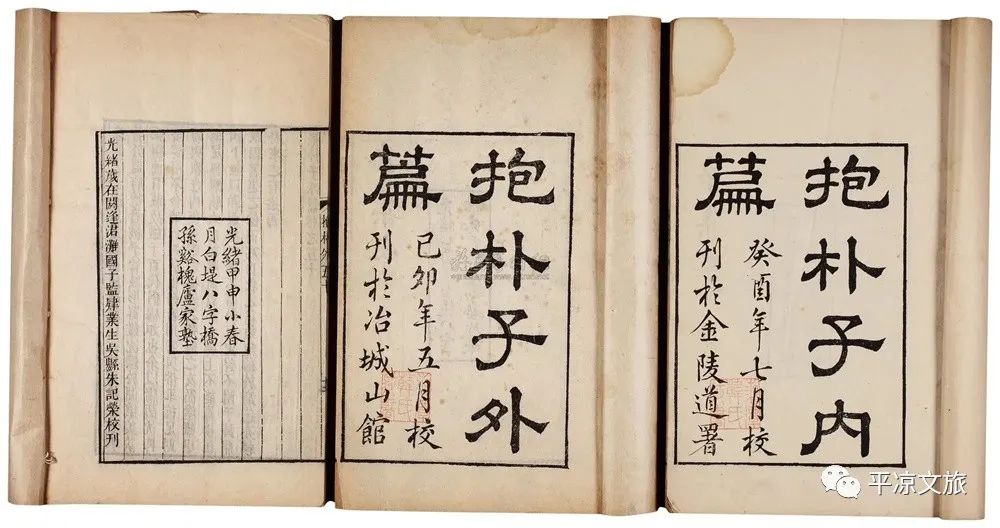 抱朴子内
篇
癸酉年七月校
刊於金陵道署
抱朴子外
篇
己卯年五月校
刊於冶城山館
光緒甲申小春
月白堤八字橋
孫谿槐廬家塾
光緒歲在閼逢涒灘國子監肄業生吳縣朱記榮校刊
平凉文旅